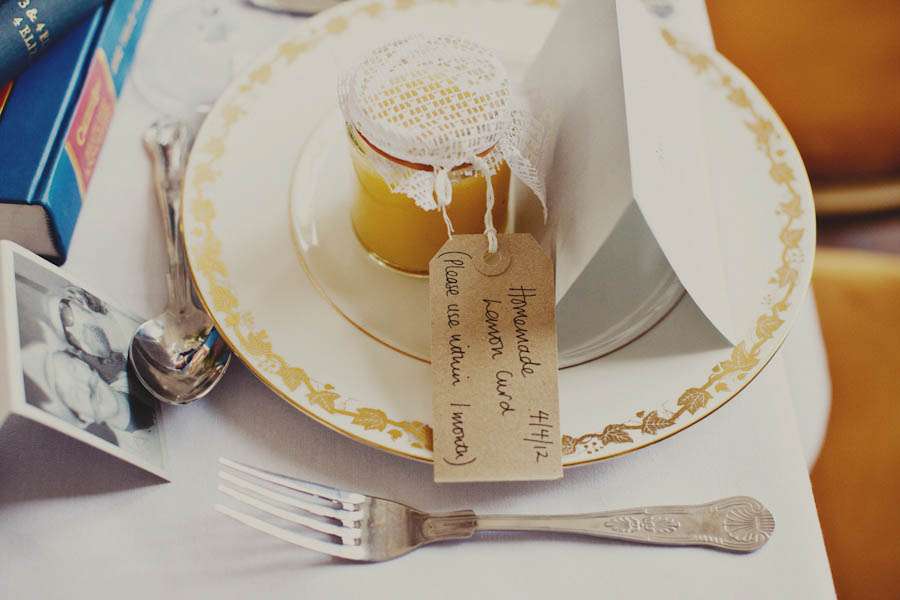 Homemade
Lemon Curd
4/4/12
(Please use within 1 month)
3 & 4 E
4 ELI